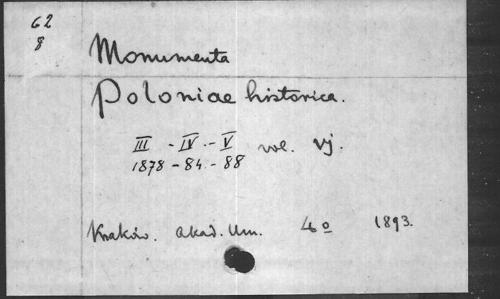 62
8
Monumenta
Poloniae historica.
III - IV - V vol. vj.
1878 - 84 - 88
Kraków. Akad. Um. 4o 1893.